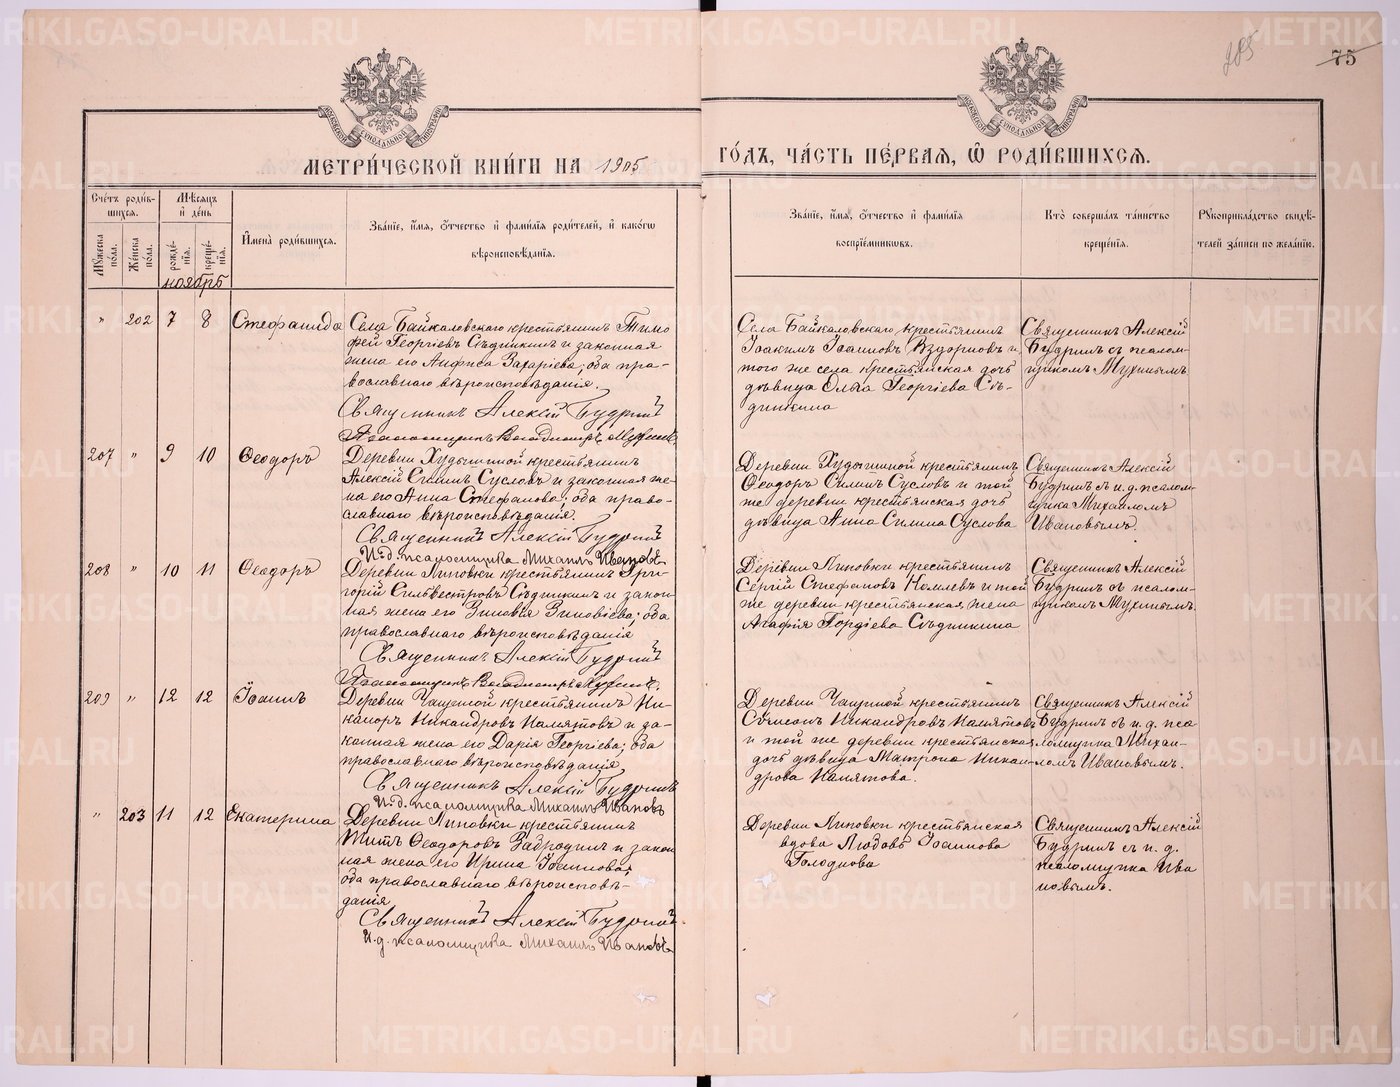 285
75
МОСКОВСКОЙ СѴНОДАЛЬНОЙ ТИПОГРАФІИ
МОСКОВСКОЙ СѴНОДАЛЬНОЙ ТИПОГРАФІИ
МЕТРИ́ЧЕСКОЙ КНИ́ГИ НА 1905
ГО́ДЪ, ЧА́СТЬ ПЕ́РВАЯ, Ѡ РОДИ́ВШИХСЯ.
Счетъ роди́в-
шихся.
Мѣсяцъ
и день
Мужеска пола.
Женска пола.
рожде-
нія.
креще-
нія.
Имена роди́вшихся.
Зва́ніе, имя, отчество и фами́лія роди́телей, и какогѡ
вѣроисповѣданія.
Зва́ніе, имя, отчество и фами́лія
воспріемниковъ.
Кто соверша́лъ та́инство
креще́нія.
Рукоприкла́дство свидѣ-
телей за́писи по жела́нію.
ноябрь
" 202 7 8 Стефанида
Села Байкаловскаго крестьянинъ Тимо
фей Георгіевъ Съдникинъ и законная
жена его Анфиса Захаріева; оба пра-
вославнаго вѣроисповѣданія.
Священникъ Алексій Будринъ
Псаломщикъ Володимиръ Мухинъ.
Села Байкаловскаго крестьянинъ
Іоакимъ Іоанновъ Вздорновъ и
того же села крестьянская дочь
дѣвица Ольга Георгіева Съ-
дникина
Священникъ Алексій
Будринъ съ псалом-
щикомъ Мухинымъ
207 " 9 10 Ѳеодоръ
Деревни Худышиной крестьянинъ
Алексій Силинъ Сусловъ и законная же-
на его Анна Стефанова; оба право-
славнаго вѣроисповѣданія.
Священникъ Алексій Будринъ
И.д. псаломщика Михаилъ Ивановъ
Деревни Худышиной крестьянинъ
Ѳеодоръ Силинъ Сусловъ и той
же деревни крестьянская дочь
дѣвица Анна Силина Суслова
Священникъ Алексій
Будринъ съ и. д. псалом-
щика Михаиломъ
Ивановымъ.
208 " 10 11 Ѳеодоръ
Деревни Липовки крестьянинъ Гри-
горій Сильвестровъ Съдникинъ и закон-
ная жена его Зиновія Зиновіева; оба
православнаго вѣроисповѣданія
Священникъ Алексій Будринъ
Псаломщикъ Володимиръ Мухинъ.
Деревни Липовки крестьянинъ
Сергій Стефановъ Комлевъ и той
же деревни крестьянская жена
Агафія Гордіева Съдникина
Священникъ Алексій
Будринъ съ псалом-
щикомъ Мухинымъ
209 " 12 12 Іоаннъ
Деревни Чащиной крестьянинъ Ни-
каноръ Никандровъ Намятовъ и за-
конная жена его Дарія Георгіева; оба
православнаго вѣроисповѣданія
Священникъ Алексій Будринъ
И.д. псаломщика Михаилъ Ивановъ
Деревни Чащиной крестьянинъ
Симеонъ Никандровъ Намятовъ
и той же деревни крестьянская
дочь дѣвица Матрона Никан-
дрова Намятова.
Священникъ Алексій
Будринъ съ и. д. пса
ломщика Михаи-
ломъ Ивановымъ.
" 203 11 12 Екатерина
Деревни Липовки крестьянинъ
Титъ Ѳеодоровъ Забродинъ и закон
ная жена его Ирина Іоаннова;
оба православнаго вѣроисповѣ-
данія
Священникъ Алексій Будринъ
И.д. псаломщика Михаилъ Ивановъ
Деревни Липовки крестьянская
вдова Любовь Іоаннова
Голоднова
Священникъ Алексій
Будринъ съ и. д.
псаломщика Ива
новымъ.
METRIKI.GASO-URAL.RU